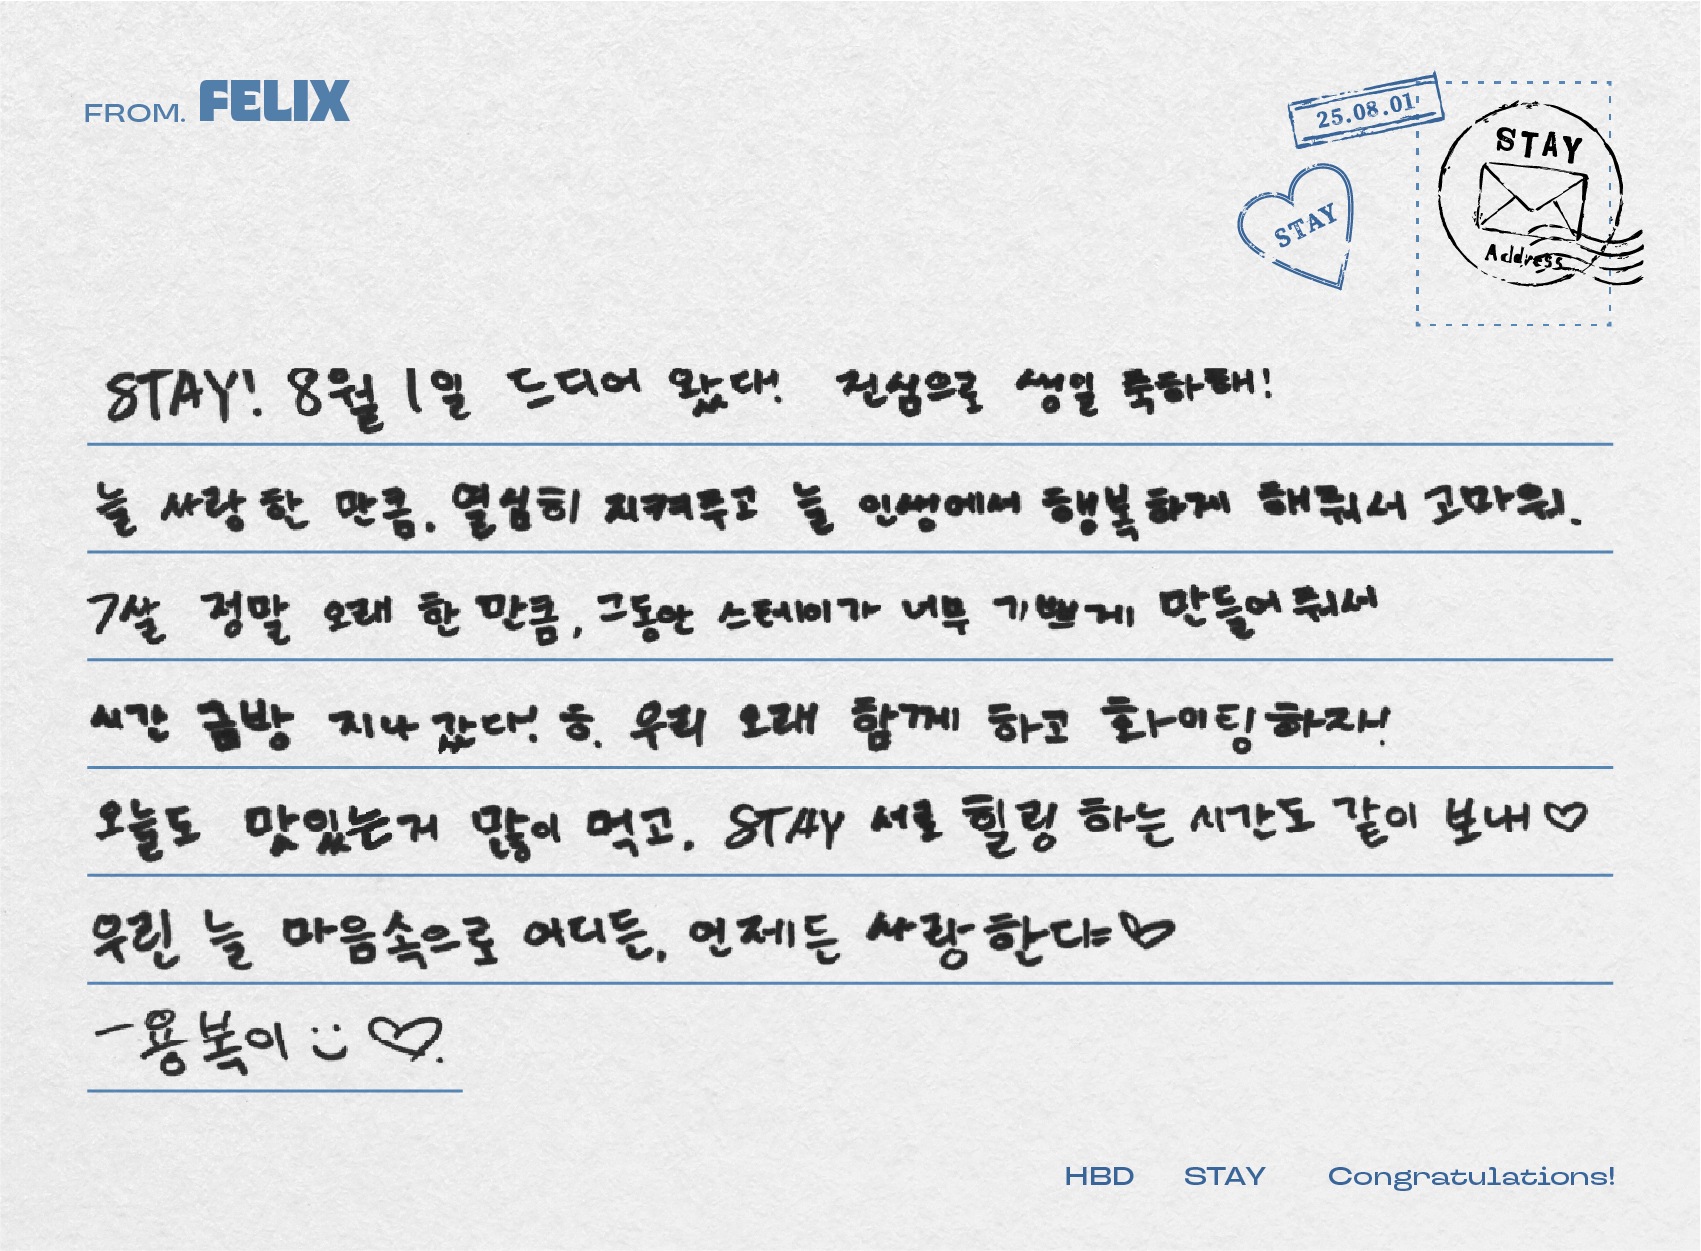 FROM. FELIX
25.08.01
STAY
STAY
Address
STAY! 8월 1일 드디어 왔다! 진심으로 생일 축하해!
늘 사랑한 만큼, 열심히 지켜주고 늘 인생에서 행복하게 해줘서 고마워.
7살 정말 오래 한 만큼, 그동안 스테이가 너무 기쁘게 만들어줘서
시간 금방 지나갔다! ㅎ. 우리 오래 함께 하고 화이팅하자!
오늘도 맛있는거 많이 먹고, STAY 서로 힐링 하는 시간도 같이 보내♡
우린 늘 마음속으로 어디든, 언제든 사랑한다♡
-용복이 :) ♡.
HBD STAY Congratulations!